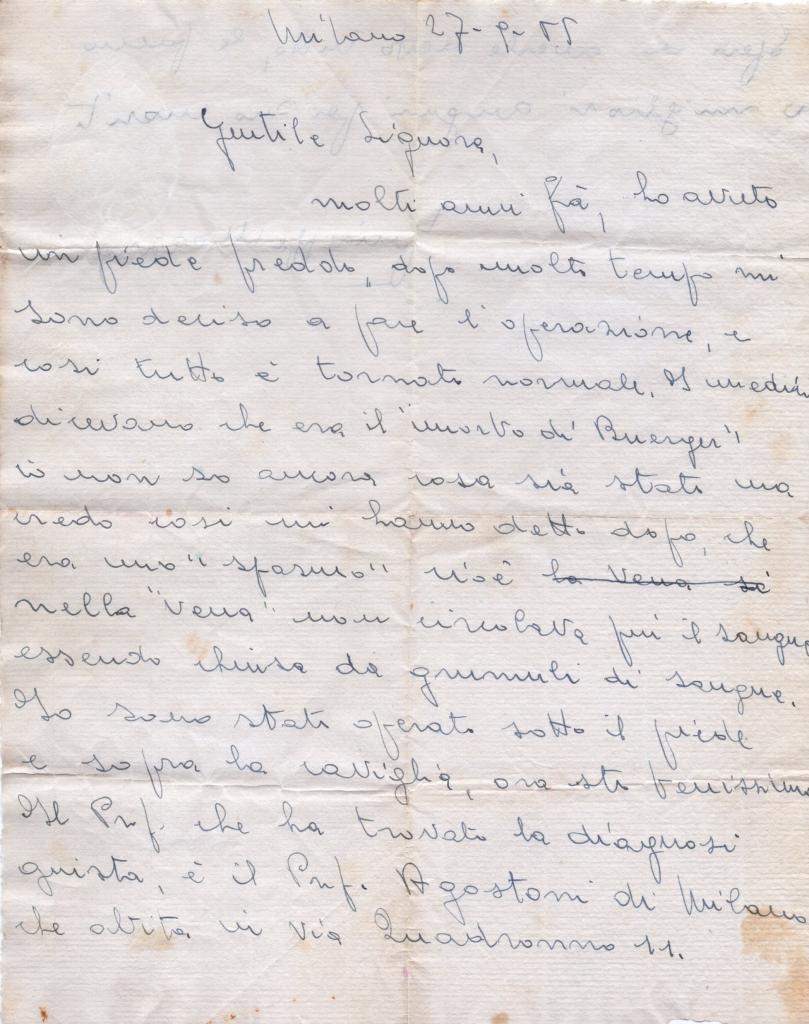 Milano 27-9-55
Gentile Signora,
molti anni fà, ho avuto
un piede freddo, dopo molto tempo mi
sono deciso a fare l'operazione, e
così tutto è tornato normale. I medici
dicevano che era il "morbo di Buerger"
io non so ancora cosa sia stato ma
credo così mi hanno detto dopo, che
era uno "spasmo" cioè la vena si
nella "vena" non circolava più il sangue
essendo chiusa da grumuli di sangue.
Io sono stato operato sotto il piede
e sopra la caviglia, ora sto benissimo
Il Prof. che ha trovato la diagnosi
guista, è il Prof. Agostoni di Milano
che abita in via Quadronno 11.